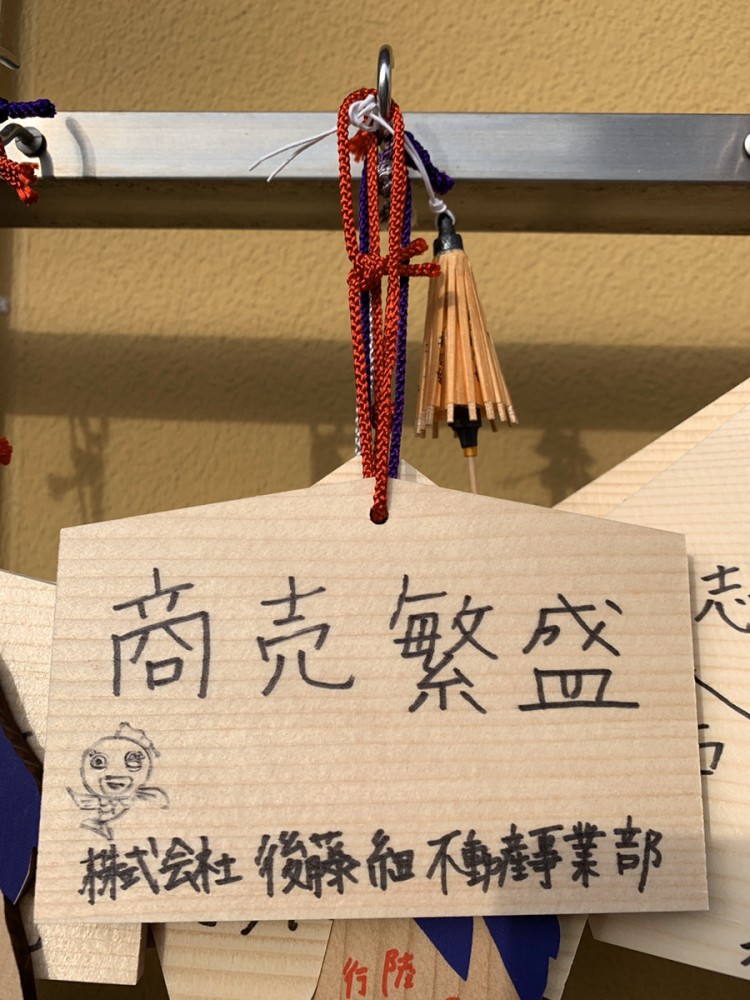 商売繁盛
株式会社 後藤組 不動産事業部
志
陸
行